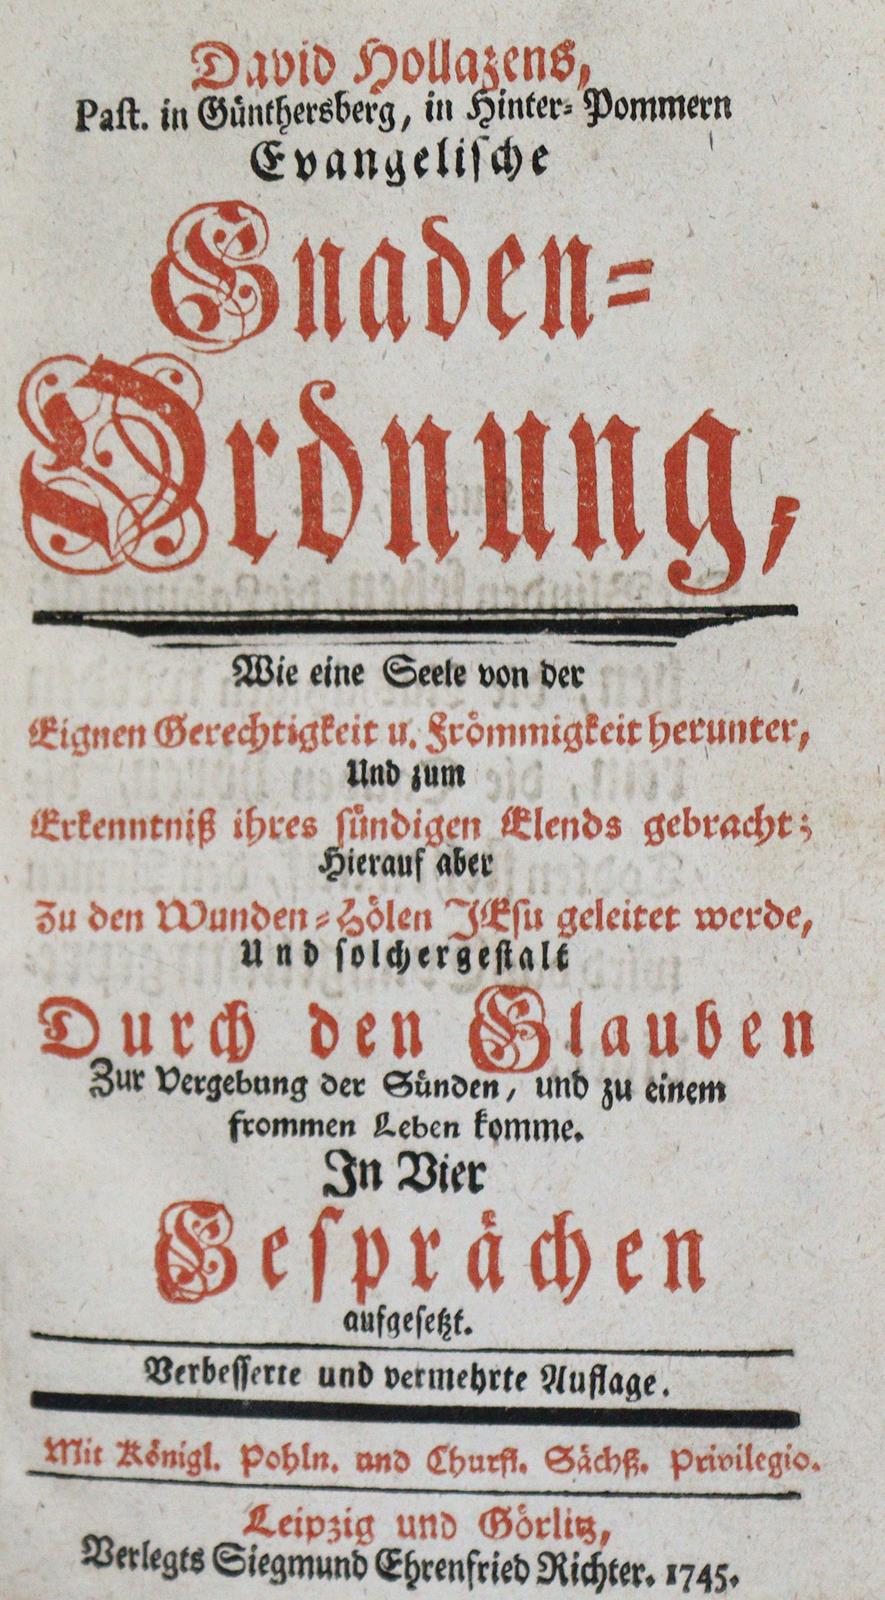 David Hollazens,
Past. in Günthersberg, in Hinter-Pommern
Evangelische
Gnaden-
Ordnung,
Wie eine Seele von der
Eignen Gerechtigkeit u. Frömmigkeit herunter,
Und zum
Erkenntniß ihres sündigen Elends gebracht;
Hierauf aber
Zu den Wunden-Hölen JEsu geleitet werde,
Und solchergestalt
Durch den Glauben
Zur Vergebung der Sünden, und zu einem
frommen Leben komme.
In Vier
Gesprächen
aufgesetzt.
Verbesserte und vermehrte Auflage.
Mit Königl. Pohln. und Churfl. Sächß. Privilegio.
Leipzig und Görlitz,
Verlegts Siegmund Ehrenfried Richter. 1745.